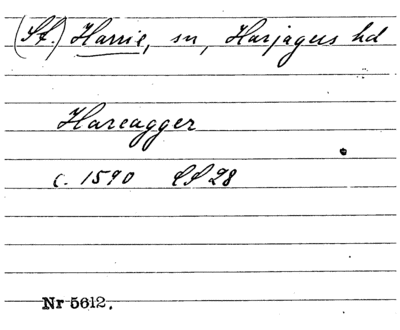 (St.) Harrie, sn, Harjagers hd
Hareagger
c. 1590 LS 28
Nr 5612.